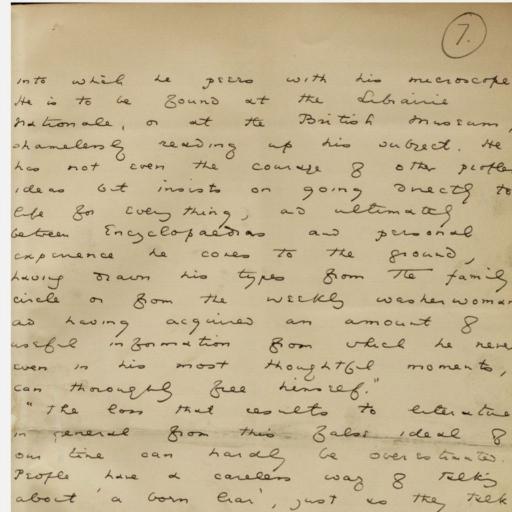 7.
into which he peers with his microscope
He is to be found at the Librairie
Nationale, or at the British Museum,
shamelessly reading up his subject. He
has not even the courage of other people
ideas but insists on going directly to
life for everything, and ultimately
between Encyclopaedias and personal
experience he comes to the ground,
having drawn his types from the family
circle or from the weekly washerwoman
and having acquired an amount of
useful information from which he never
even in his most thoughtful moments,
can thoroughly free himself."
"The loss that results to literature
in general from this false ideal of
our time can hardly be overestimated.
People have a careless way of talking
about 'a born liar', just as they talk